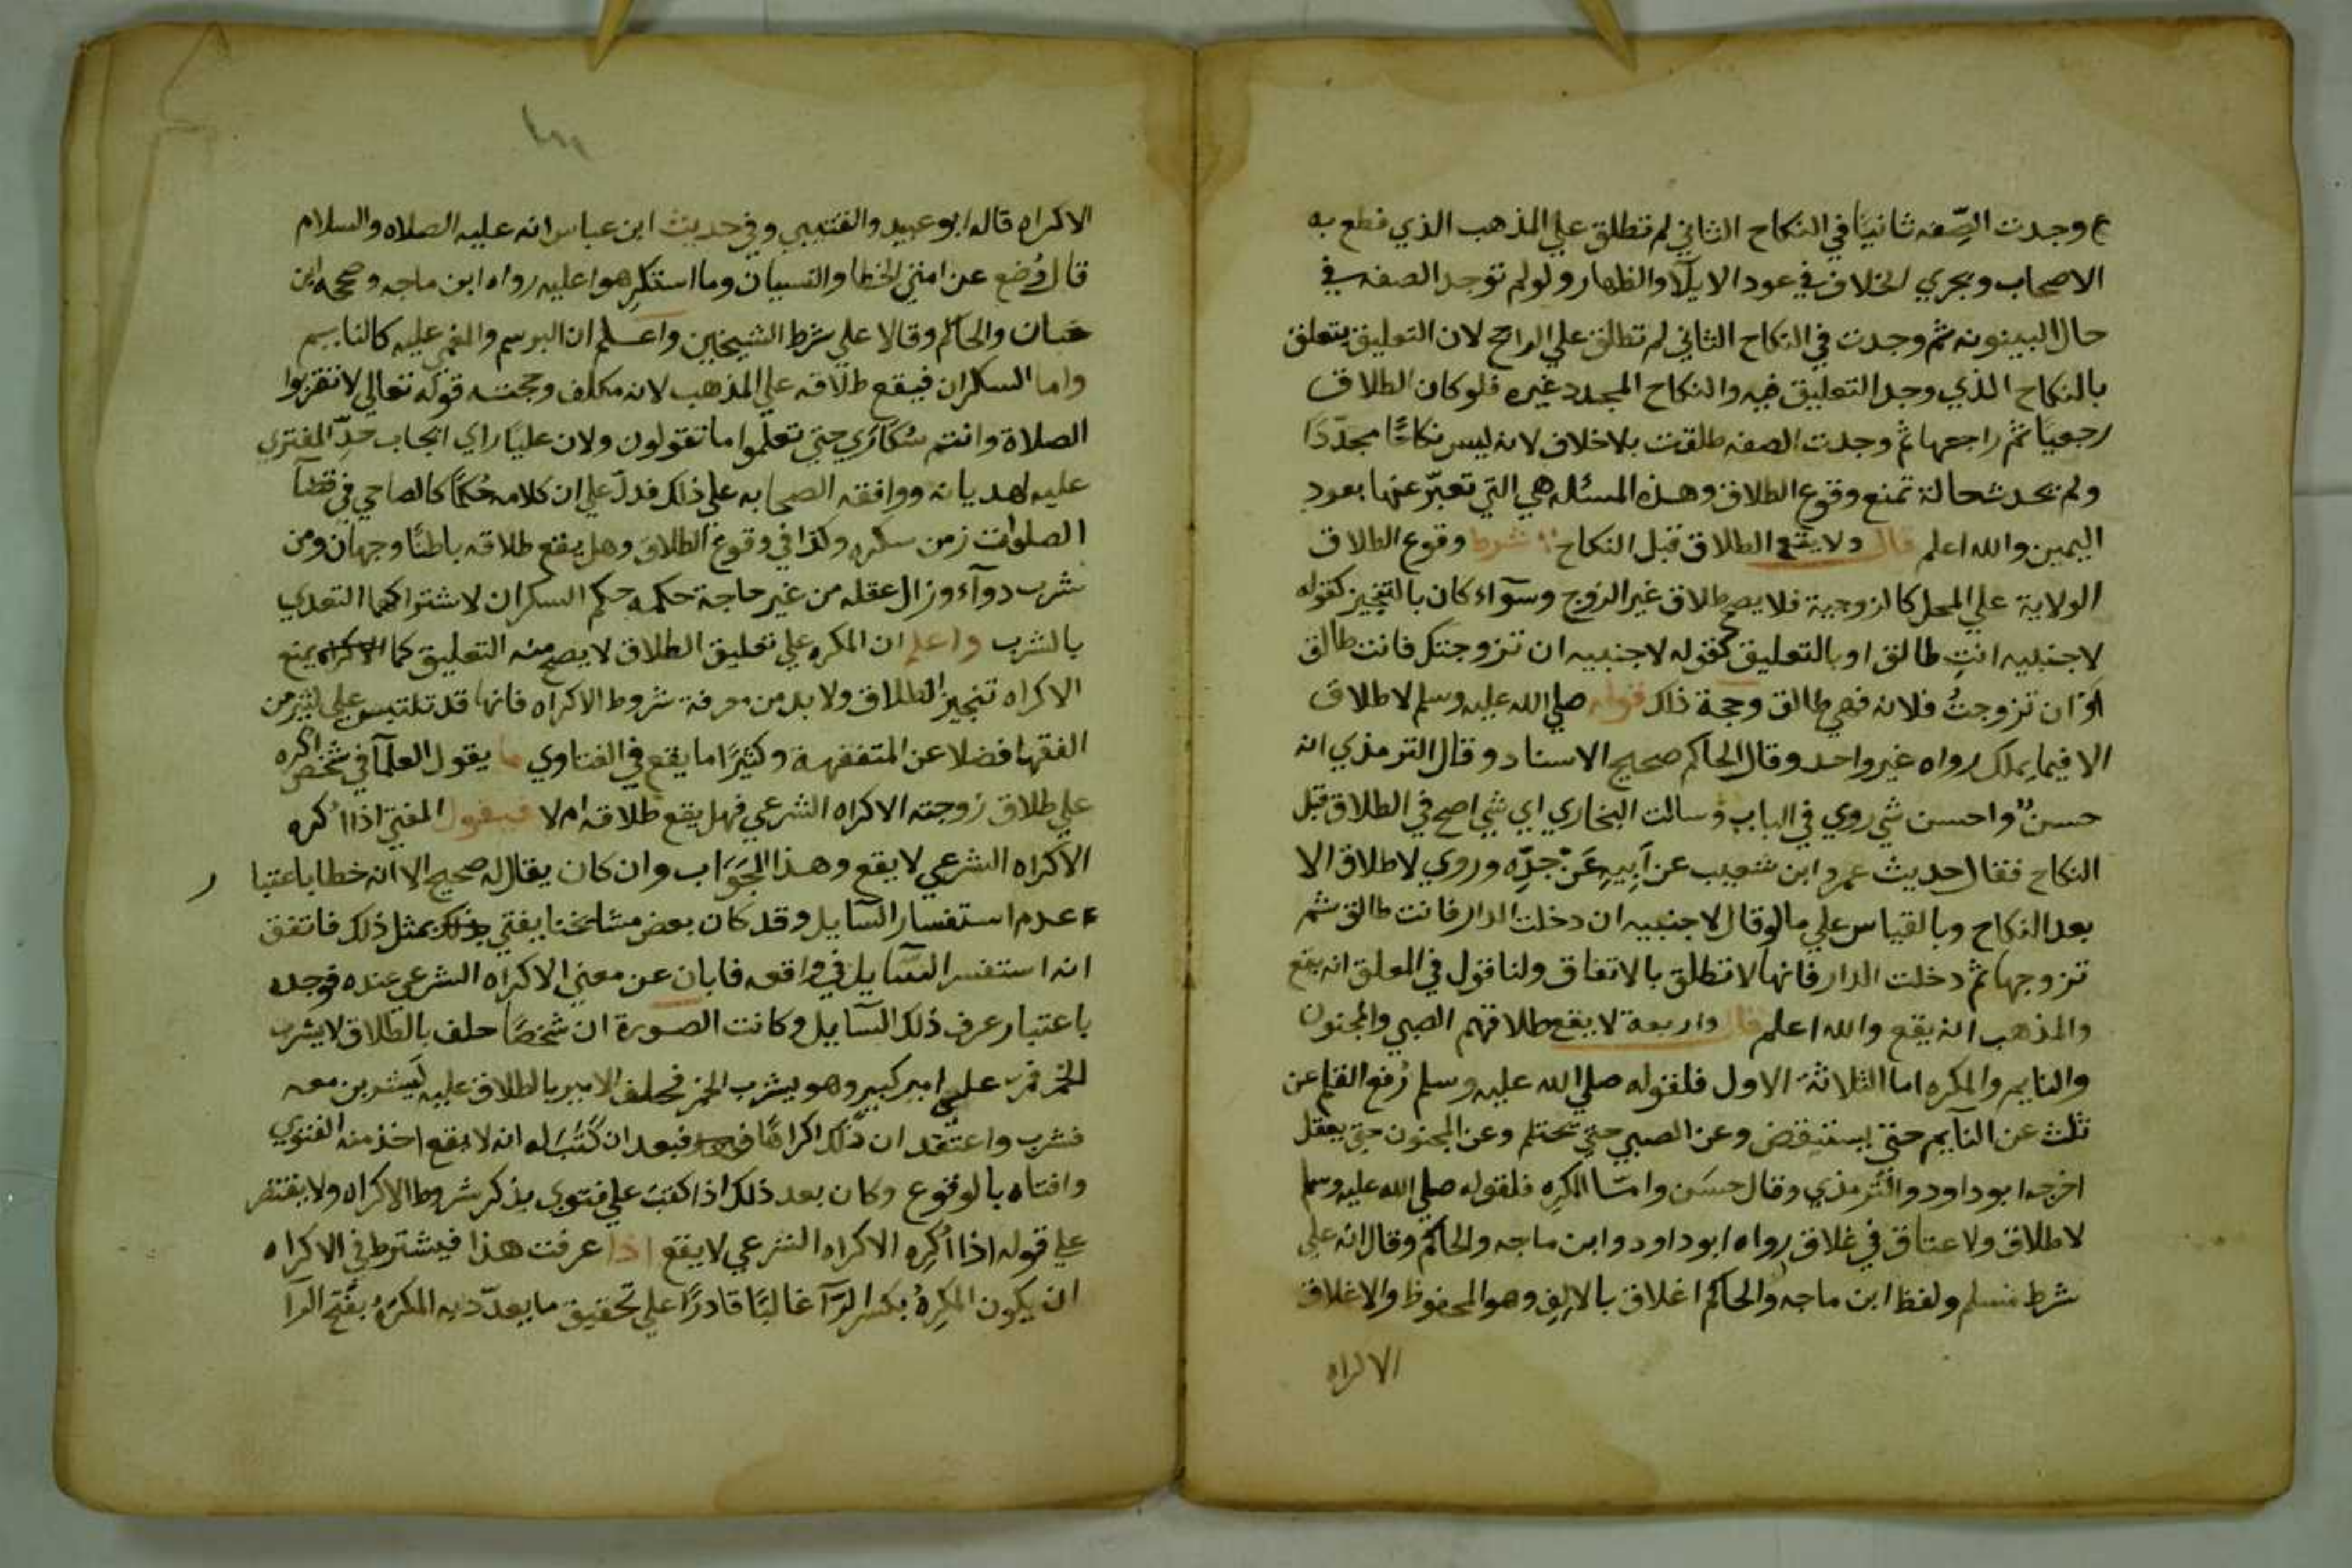 ثم وجدت الصِّفه ثانيًا في النكاح الثاني لم تطلق علي المذهب الذي قطع به
الاصحاب ويجري الخلاف في عود الايلآ والظهار ولو لم توجد الصفه في
حال البينونه ثم وجدت في النكاح الثاني لم تطلق علي الراجح لان التعليق يتعلق
بالنكاح الذي وجد التعليق فيه والنكاح المجدد غيره فلو كان الطلاق
رجعيًا ثم راجعها ثم وجدت الصفه طلقت بلا خلاف لانه ليس نكاحًا مجدّدًا
ولم يحدث حالة تمنع وقوع الطلاق وهذه المسئله هي التي تعبّر عنها بعود
اليمين والله اعلم قال ولا يقع الطلاق قبل النكاح شرط وقوع الطلاق
الولاية علي المحل كالزوجية فلا يصح طلاق غير الزوج وسوآء كان بالتنجيز كقوله
لاجنبيه انتِ طالق او بالتعليق كقوله لاجنبيه ان تزوجتك فانت طالق
اوْ ان تزوجتُ فلانه فهي طالق وحجة ذلك قوله صلي الله عليه وسلم لا طلاق
الا فيما يملك رواه غير واحد وقال الحاكم صحيح الاسناد وقال الترمذي انه
حسنٌ واحسن شي روي في الباب وسالت البخاري اي شي اصح في الطلاق قبل
النكاح فقال حديث عمرو ابن شعيب عن اَبِيهِ عَنْ جدِّه وروي لا طلاق الا
بعد النكاح وبالقياس علي ما لو قال لاجنبيه ان دخلت الدار فانت طالق ثم
تزوجها ثم دخلت الدار فانها لا تطلق بالاتفاق ولنا قول في المعلق انه يقع
والمذهب انه يقع والله اعلم قال واربعة لا يقع طلاقهم الصبي والمجنون
والنايم والمكره اما الثلاثة الاول فلقوله صلي الله عليه وسلم رُفع القلم عن
ثلث عن النآيم حتي يستيقض وعن الصبي حتي تحتلم وعن المجنون حتي يعقل
اخرجه ابو داود والتّرمذي وقال حسَن وامّا المكرِه فلقوله صلي الله عليه وسلم
لا طلاق ولا عتاق في غلاق رواه ابو داود وابن ماجه والحاكم وقال انّه علي
شرط مسلم ولفظ ابن ماجه والحاكم اغلاق بالالِفِ وهو المحفوظ والاغلاق
الاكراه
الاكراه قاله ابو عبيد والقتيبي وفي حديث ابن عباس انه عليه الصلاه والسلام
قال وُضع عن امتي الخطا والنسيان وما استكرِهوا عليه رواه ابن ماجه وصححه ابن
حبان والحاكم وقالا علي شرط الشيخين واعلم ان البرسم والمغمي عليه كالنايم
واما السكران فيقع طلاقه علي المذهب لانه مكلف وحجته قوله تعالي لا تقربوا
الصلاة وانتم سُكَارَي حتي تعلَموا ما تقولون ولان عليًا راي ايجاب حدّ المفتري
عليه لهديانه ووافقه الصحابه علي ذلك فدلّ علي ان كلامه حُكمًا كالصاحي في قضآ
الصلوات زمن سكره وكذا في وقوع الطلاق وهل يقع طلاقه باطنًا وجهان ومن
شرب دوآء وزال عقله من غير حاجة حكمه حكم السكران لاشتراكهما التعدي
بالشرب واعلم ان المكره علي تعليق الطلاق لا يصح منه التعليق كما يمنع
الاكراه تنجيز الطلاق ولا بد من معرفة شروط الاكراه فانها قد تلتبس علي كثير من
الفقها فضلا عن المتفقهة وكثيرًا ما يقع في الفتاوي ما يقول العلمآ في شخص اكره
علي طلاق زوجته الاكراه الشرعي فهل يقع طلاقه ام لا فيقول المفتي اذا اُكره
الاكراه الشرعي لا يقع وهذا الجَوَاب وان كان يقال له صحيح الا انه خطا باعتبا ر
عدم استفسار السآيل وقد كان بعض مشايخنا يفتي بمثل ذلك فاتفق
انه استفسر السّآيل في واقعه فابان عن معني الاكراه الشرعي عنده فوجده
باعتبار عرف ذلك السآيل وكانت الصورة ان شخصًا حلف بالطلاق لا يشرب
الخمر فمر علي امير كبير وهو يشرب الخمر فحلف الامير بالطلاق عليه لَيشربن معه
فشرب واعتقد ان ذلك اكراهًا فبعد ان كُتُبَ له انه لا يقع اخذ منه الفتوي
وافتاه بالوقوع وكان بعد ذلك اذا كتبَ علي فتوي يذكر شروط الاكراه ولا يقتصر
علي قوله اذا اُكرِه الاكراه الشرعي لا يقع اذا عرفت هذا فيشترط في الاكراه
ان يكون المكرِهُ بكسر الرّآ غالبًا قادرًا علي تحقيق ما يهدّد به المكرَهُ بفتح الرآ